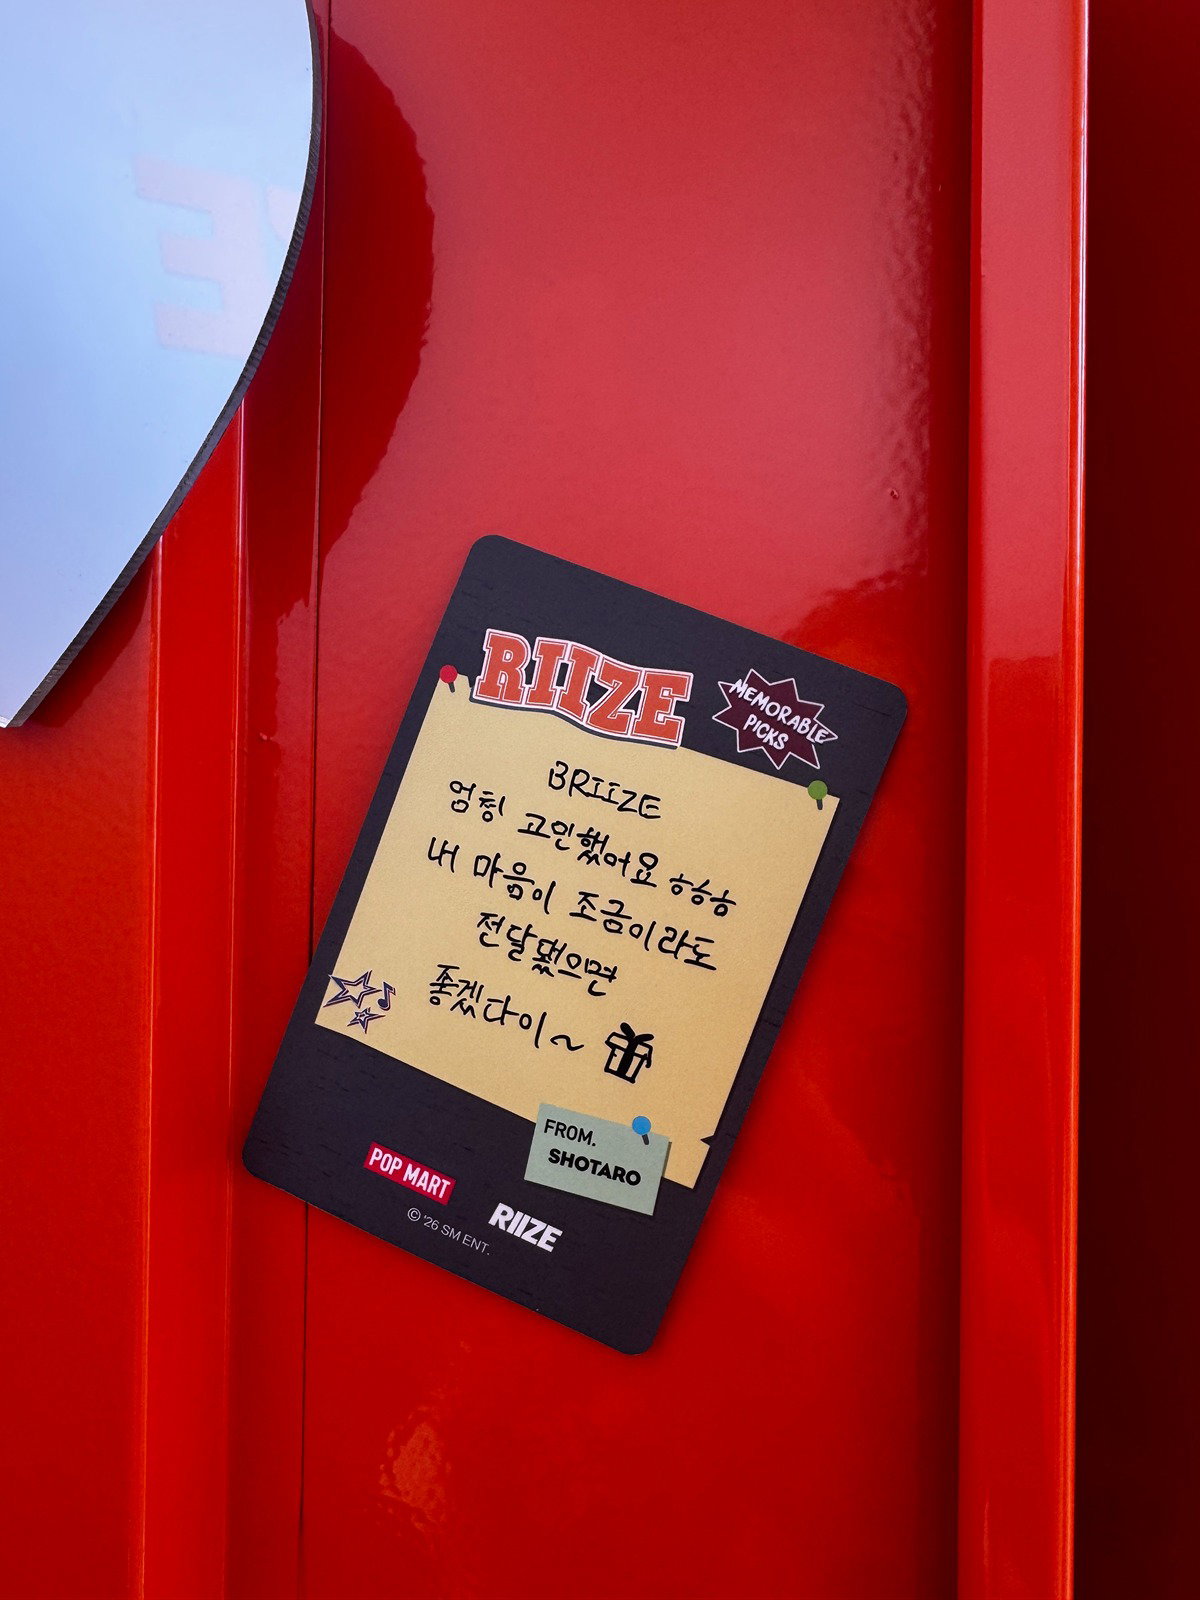 RIIZE
MEMORABLE
PICKS
BRIIZE
엄청 고민했어요 ㅎㅎㅎ
내 마음이 조금이라도
전달됐으면
좋겠다이~
FROM.
SHOTARO
POP MART
RIIZE
© '26 SM ENT.